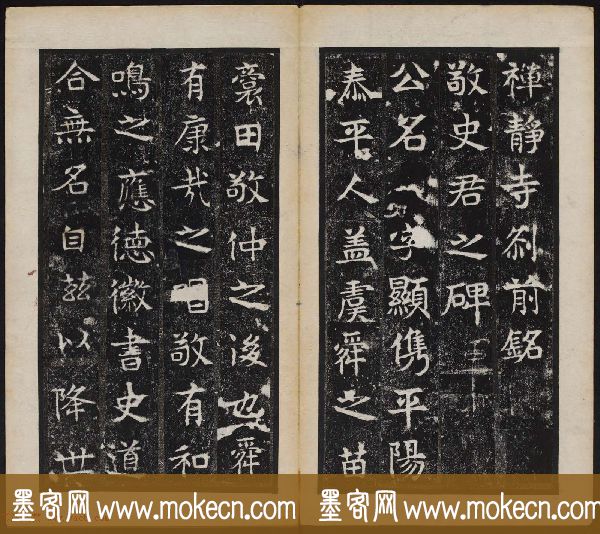 禅靜寺刹前銘
敬史君之碑
公名 字顯儁平陽
泰平人盖虞舜之苗
裔田敬仲之後也舜
有康哉之唱敬有和
鳴之應德徽書史道
合無名自兹以降世
墨客网 www.mokecn.com 墨客网 www.mokecn.com